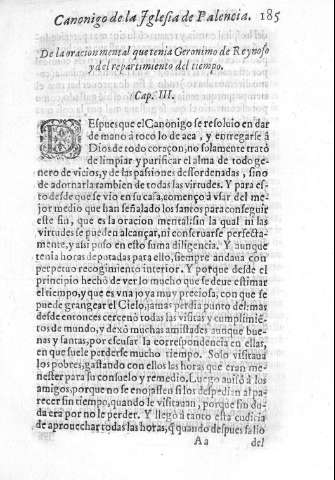 Canonigo de la Iglesia de Palencia. 185
De la oracion mental que tenia Geronimo de Reynoso
y del repartimiento del tiempo.
Cap. III.
DEspues que el Canonigo se resoluio en dar
de mano à todo lo de aca, y entregarse à
Dios de todo coraçon, no solamente trató
de limpiar y purificar el alma de todo ge
nero de vicios, y de las passiones dessordenadas, sino
de adornarla tambien de todas las virtudes. Y para es-
to desde que se vio en su casa, començò a vsar del me-
jor medio que han señalado los santos para conseguir
este fin, que es la oracion mental: sin la qual ni las
virtudes se pueden alcançar, ni conseruarse perfecta-
mente, y assi puso en esto suma diligencia. Y aunque
tenia horas deputadas para ello, siempre andaua con
perpetuo recogimiento interior. Y porque desde el
principio hechò de ver lo mucho que se deue estimar
el tiempo, y que es vna joya muy preciosa, con que se
puede grangear el Cielo, jamas perdia punto del: mas
desde entonces cercenò todas las visitas y cumplimiẽ-
tos de mundo, y dexò muchas amistades aunque bue-
nas y santas, por escusar la correspondencia en ellas,
en que suele perderse mucho tiempo. Solo visitaua
los pobres, gastando con ellos las horas que eran me-
nester para su consuelo y remedio. Luego auisò à los
amigos, porque no se enojassen si los despedian al pa-
recer sin tiempo, quando le visitauan, porque sin du-
da era por no le perder. Y llegò à tanto esta cudicia
de aprouechar todas las horas, q̃ quando despues salio
Aa del